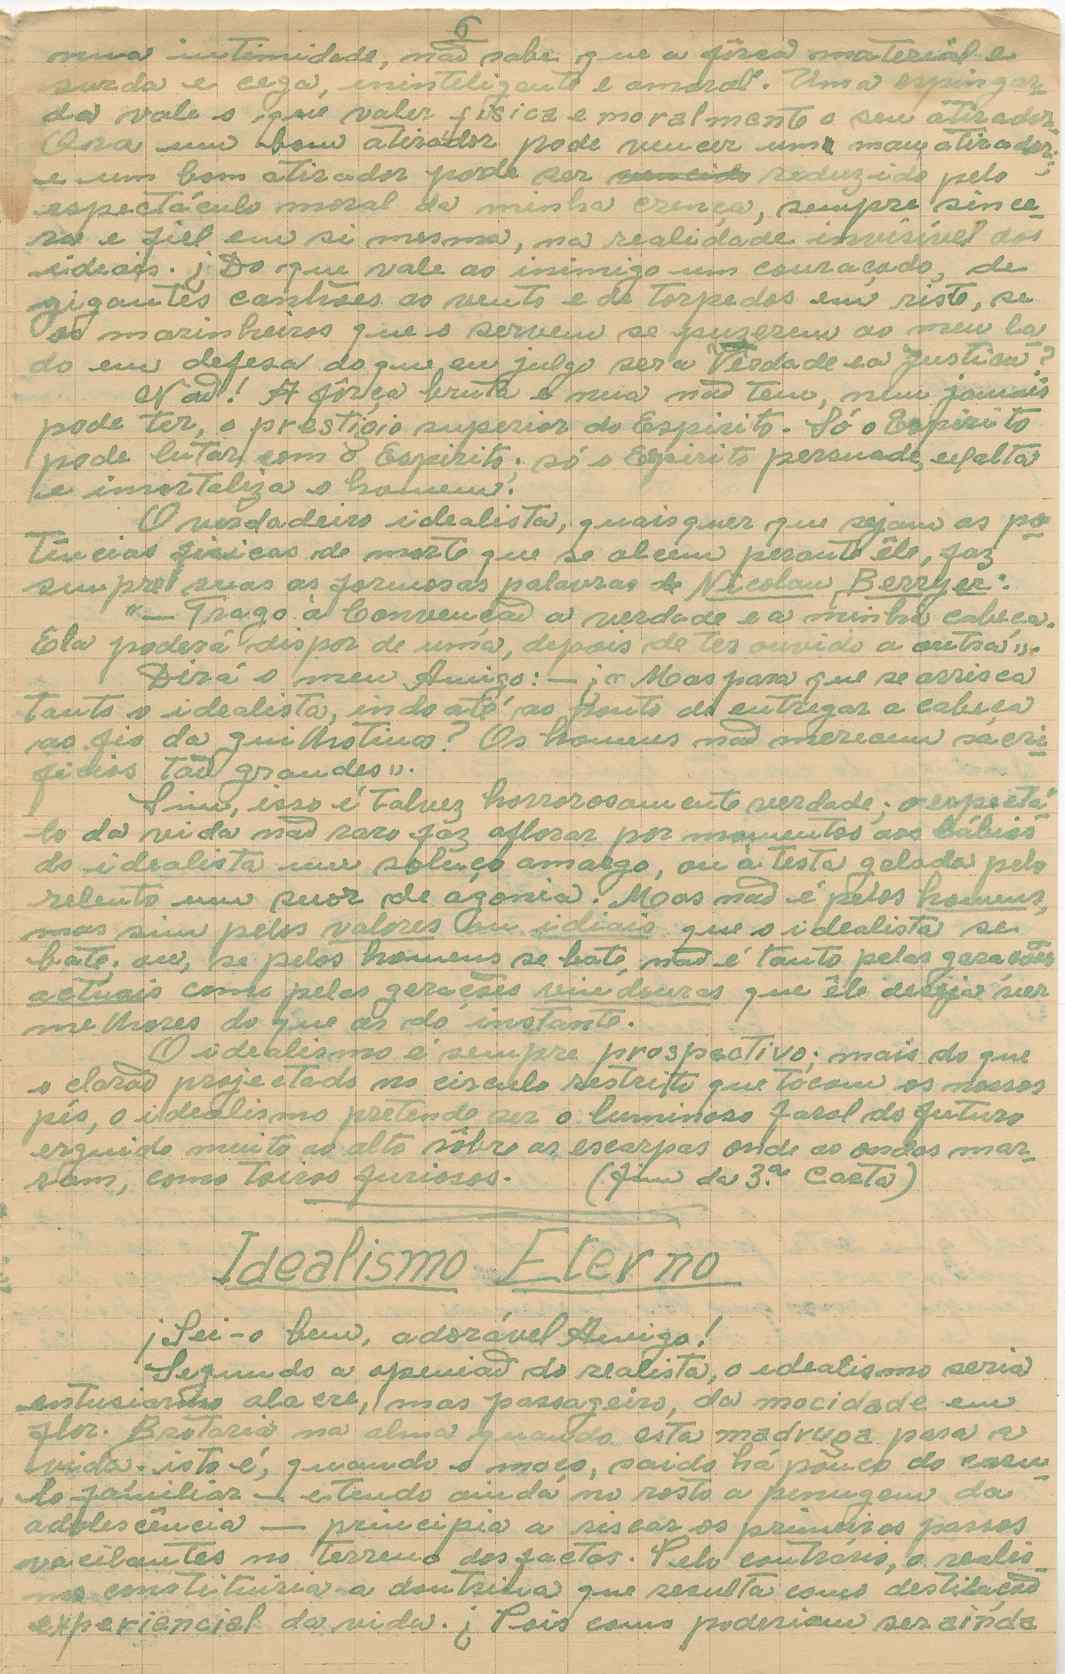 6
nua intimidade, não sabe que a fôrça material e
surda e cega, ininteligente e amoral. Uma espingar-
da vale o que valer física e moralmente o seu atirador.
Ora um bom atirador pode vencer um mau atirador;
e um bom atirador pode ser vencido reduzido pelo
espectáculo moral da minha crença, sempre since-
ra e fiel em si mesma, na realidade invisível dos
ideais. ¿ Do que vale ao inimigo um couraçado, de
gigantes canhões ao vento e de torpedos em risto, se
os marinheiros que o servem se puzerem ao meu la-
do em defesa do que eu julgo ser a Verdade e a Justiça?
Não! A fôrça bruta e nua não tem, nem jamais
pode ter, o prestígio superior do Espirito. Só o Espirito
pode lutar com o Espirito; só o Espirito persuade, exalta
e imortaliza o homem.
O verdadeiro idealista, quaisquer que sejam as po-
tências físicas de morte que se alcem perante êle, faz
sempre suas as formosas palavras de Nicolau Berryer:
"— Trago à Convenção a verdade e a minha cabeça.
Ela poderá dispor de uma, depois de ter ouvido a outra».
Dirá o meu Amigo: — ¿« Mas para que se arrisca
tanto o idealista, indo até ao ponto de entregar a cabeça
ao fio da guilhotina? Os homens não merecem sacri-
fícios tão grandes».
Sim, isso é talvez horrorosamente verdade; o espectácu-
lo da vida não raro faz aflorar por momentos aos lábios
do idealista um soluço amargo, ou à testa gelada pelo
relento um suor de agonia. Mas não é pelos homens,
mas sim pelos valores ou idiais que o idealista se
bate; ou, se pelos homens se bate, não é tanto pelas gerações
actuais como pelas gerações vindouras que êle deseja ver
melhores do que as do instante.
O idealismo é sempre prospectivo; mais do que
o clarão projectado no circulo restrito que tocam os nossos
pés, o idealismo pretende ser o luminoso farol do futuro
erguido muito ao alto sôbre as escarpas onde as ondas mar-
ram, como toiros furiosos. (Fim da 3.ª Carta)
Idealismo Eterno
¡Sei-o bem, adorável Amigo!
Segundo a openião do realista, o idealismo seria
entusiasmo alacre, mas passageiro, da mocidade em
flor. Brotaria na alma quando esta madruga para a
vida. isto é, quando o moço, saido há pouco do casu-
lo familiar — e tendo ainda no rosto a penugem da
adolescência — principia a riscar os primeiros passos
vacilantes no terreno dos factos. Pelo contrário, o realis-
mo constituiria a doutrina que resulta como destilação
experiencial da vida. ¿ Pois como poderiam ser ainda